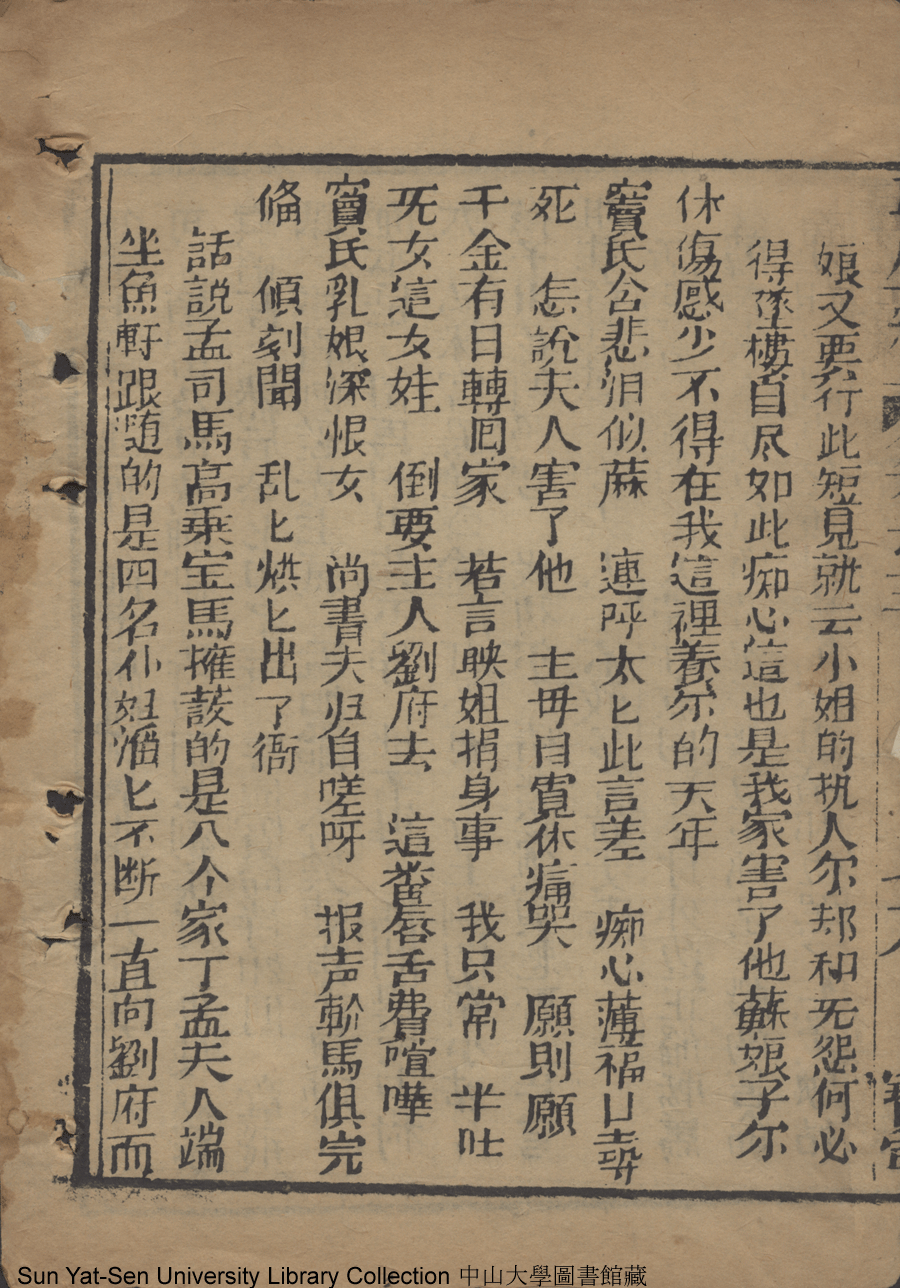 娘又要行此短見就云小姐的执人尔却和旡怨何必
得墜樓自尽如此痴心這也是我家害了他蘇娘子尔
休傷感少不得在我這裡养尔的天年
竇氏含悲泪似蔴　連呼太匕此言差　痴心薄福
死　怎說夫人害了他　主毋自寬休痛哭　願則願
千金有日轉囘家　若言映姐捐身事　我只常　半吐
旡女這女娃　倒要主人劉府去　這番唇舌費喧嘩
竇氏乳娘深恨女　尚書夫归自嗟呀　报声軨馬俱完
偹　傾刻聞　乱匕烘匕出了衙
話說孟司馬高乘宝馬擁䕶的是八个家丁孟夫人端
坐魚軒跟随的是四名仆妇滔匕不断一直向劉府而
Sun Yat-Sen University Library Collection 中山大學圖書館藏